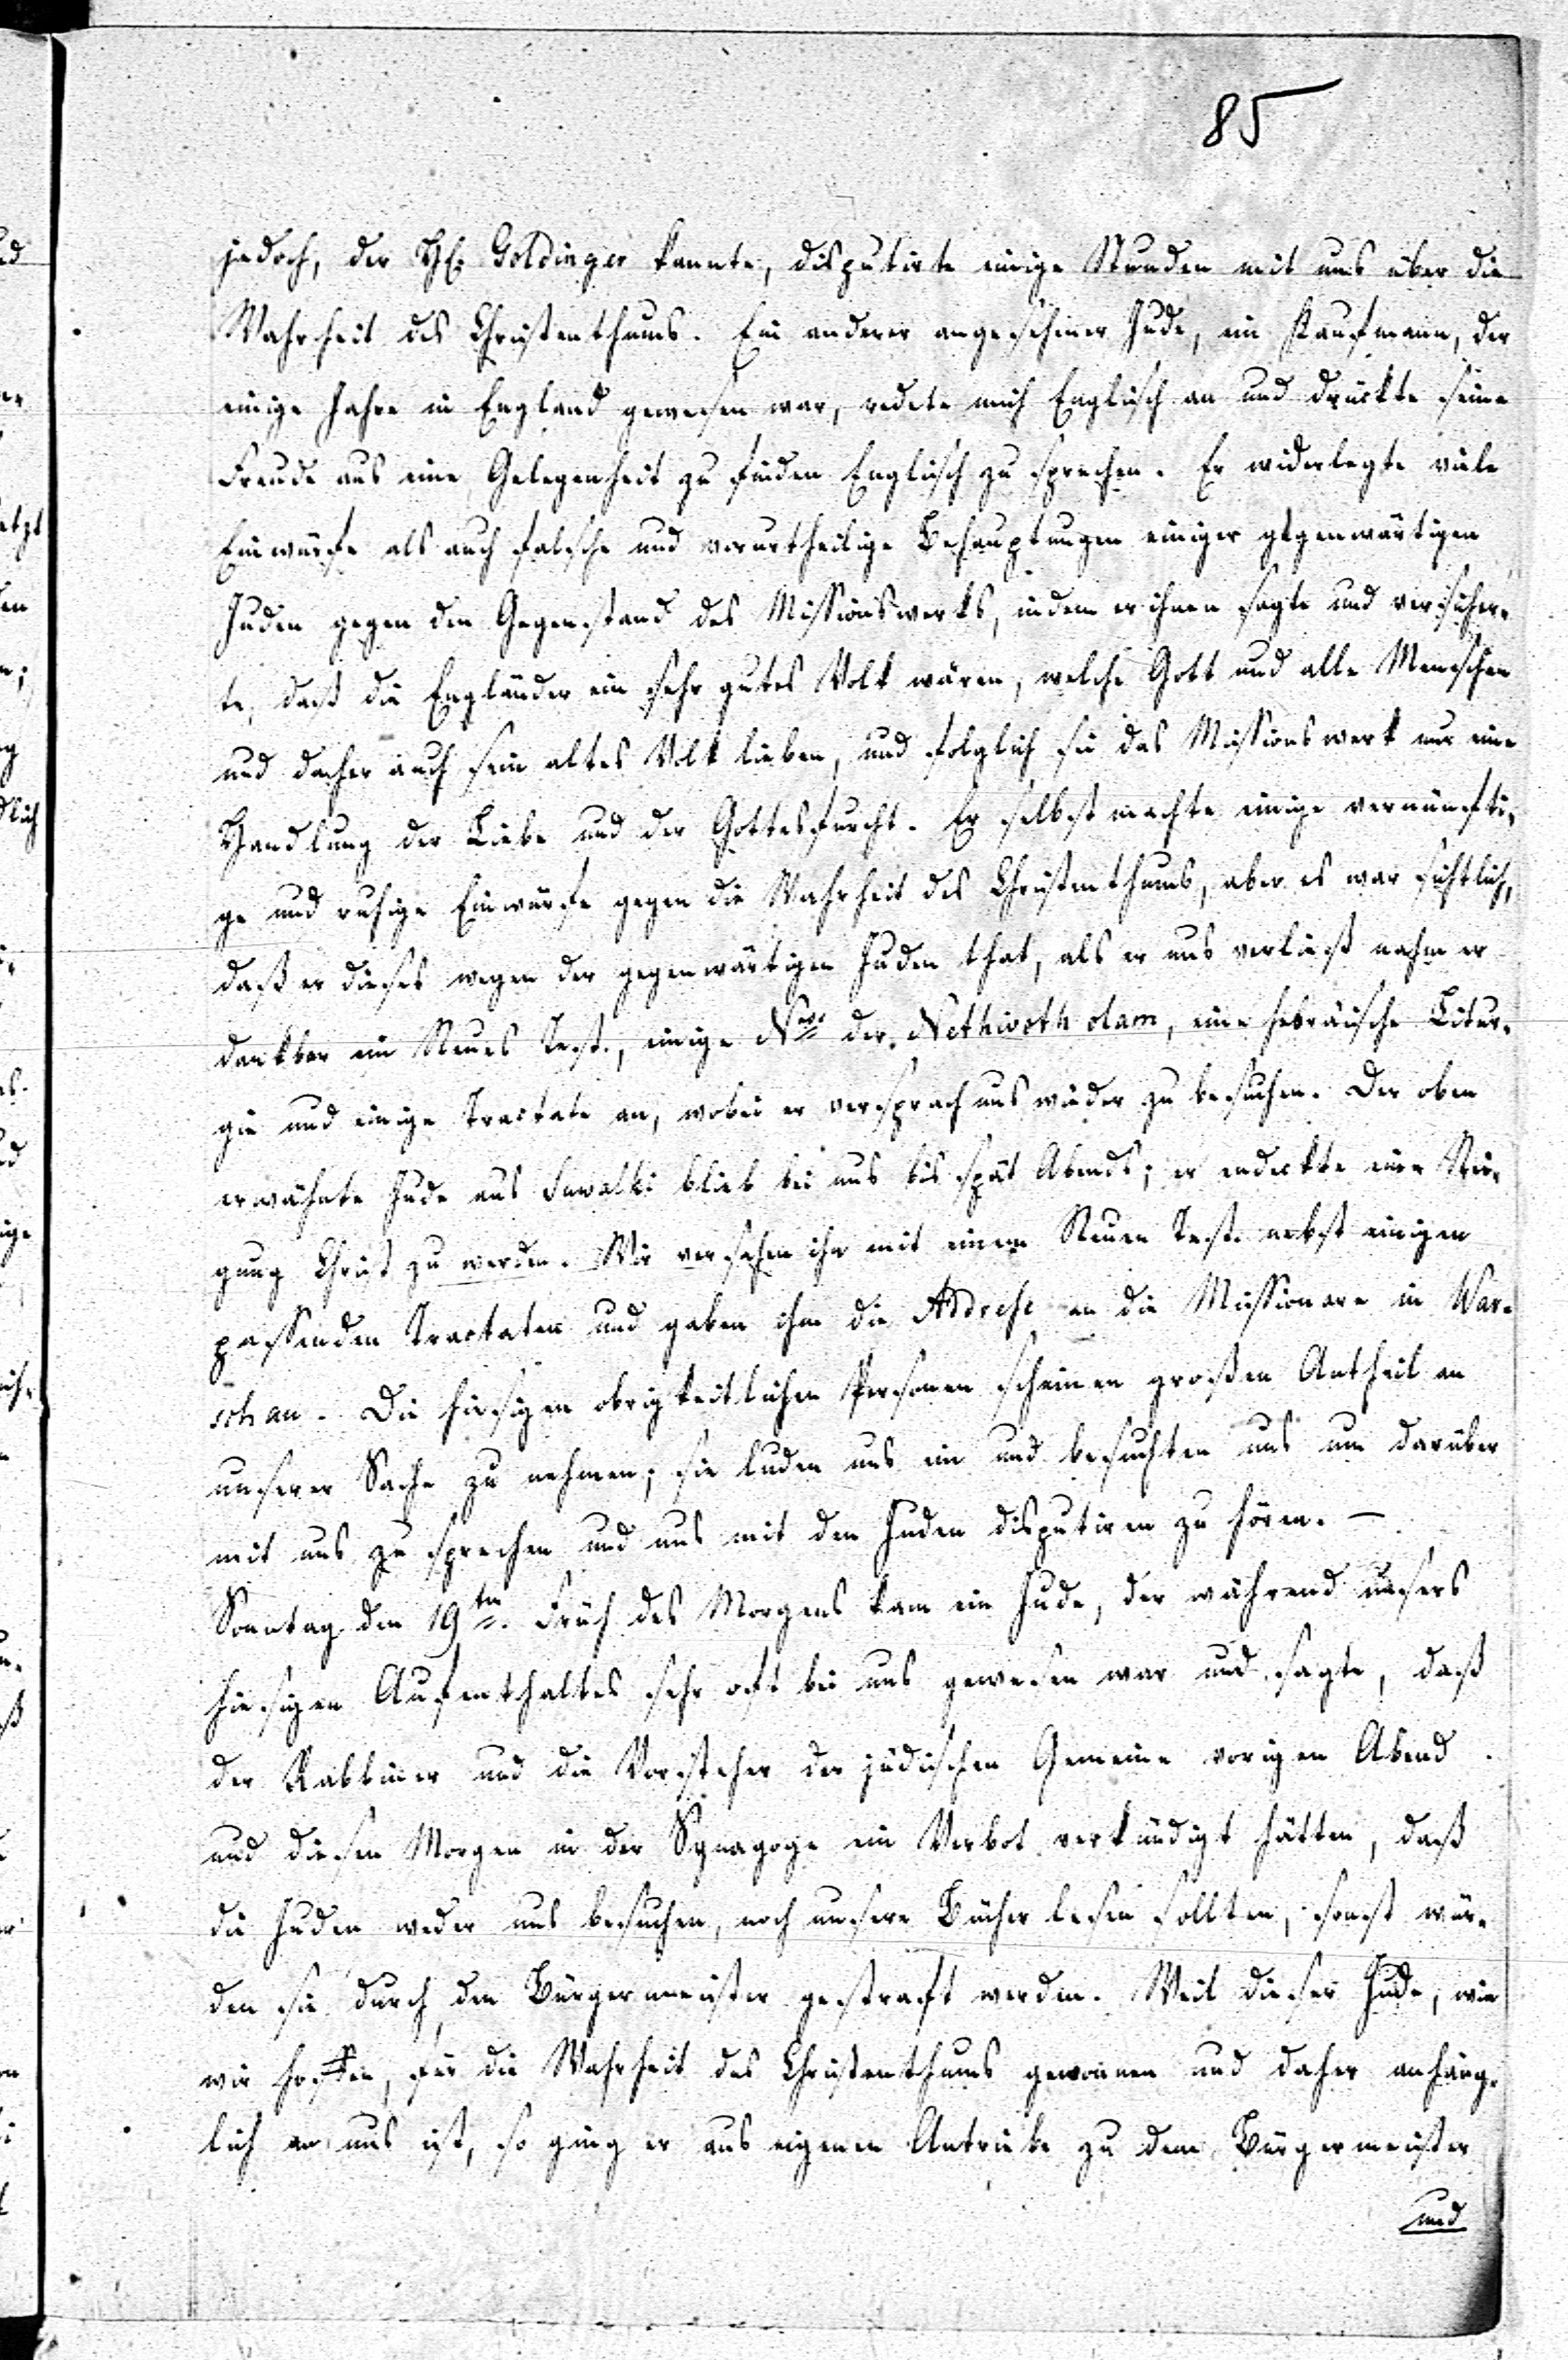 85
jedoch, der H. Goldinger kannte, disputirte einige Stunden mit uns über die
Wahrheit des Christenthums. Ein anderer angesehener Jude, ein Kaufmann, der
einige Jahre in England gewesen war, redete mich Englisch an und drückte seine
Freude aus eine Gelegenheit zu finden Englisch zu sprechen. Er widerlegte viele
Einwürfe als auch falsche und vorurtheilige Behauptungen einiger gegenwärtigen
Juden gegen den Gegenstand des Missionswerks, indem er ihnen sagte und versicher-
te, daß die Engländer ein sehr gutes Volk wären, welche Gott und alle Menschen
und daher auch sein altes Volk lieben, und folglich sei das Missionswerk nur eine
Handlung der Liebe und der Gottesfurcht. Er selbst machte einige vernünfti-
ge und ruhige Einwürfe gegen die Wahrheit des Christenthums, aber es war sichtlich,
daß er dieses wegen der gegenwärtigen Juden that, als er uns verließ nahm er
dankbar ein Neues Test., einige Nros der Nethivoth olam, eine hebräische Litur-
gie und einige Tractate an, wobei er versprach uns wieder zu besuchen. Der oben
erwähnte Jude aus Suwalki blieb bei uns bis spät Abends; er endeckte eine Nei-
gung Christ zu werden. Wir versehen ihn mit einem Neuen Test. nebst einigen
passenden Tractaten und gaben ihm die Addresse an die Missionare in War-
schau. Die hiesigen obrigkeitlichen Personen scheinen großen Antheil an
unserer Sache zu nehmen; sie luden uns ein und besuchten uns um darüber
mit uns zu sprechen und uns mit den Juden disputiren zu hören. —
Sonntag den 19ten. Früh des Morgens kam ein Jude, der während unsers
hiesigen Aufenthaltes sehr oft bei uns gewesen war und sagte, daß
der Rabbiner und die Vorsteher der jüdischen Gemeine vorigen Abend
und diesen Morgen in der Synagoge ein Verbot verkündigt hätten, daß
die Juden weder uns besuchen, noch unsere Bücher lesen sollten, sonst wür-
den sie durch den Bürgermeister gestraft werden. Weil dieser Jude, wie
wir hoffen, für die Wahrheit des Christenthums gewonnen und daher anhäng-
lich an uns ist, so ging er aus eigenem Antriebe zu dem Bürgermeister
und